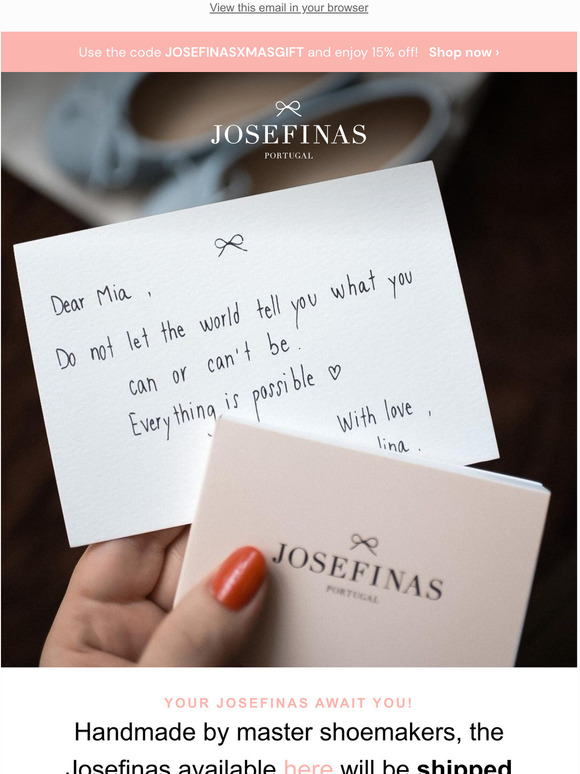 View this email in your browser
Use the code JOSEFINASXMASGIFT and enjoy 15% off! Shop now ›
JOSEFINAS
PORTUGAL
Dear Mia ,
Do not let the world tell you what you
can or can't be .
Everything is possible ♡
With love ,
lina .
JOSEFINAS
PORTUGAL
YOUR JOSEFINAS AWAIT YOU!
Handmade by master shoemakers, the
Josefinas available here will be shipped